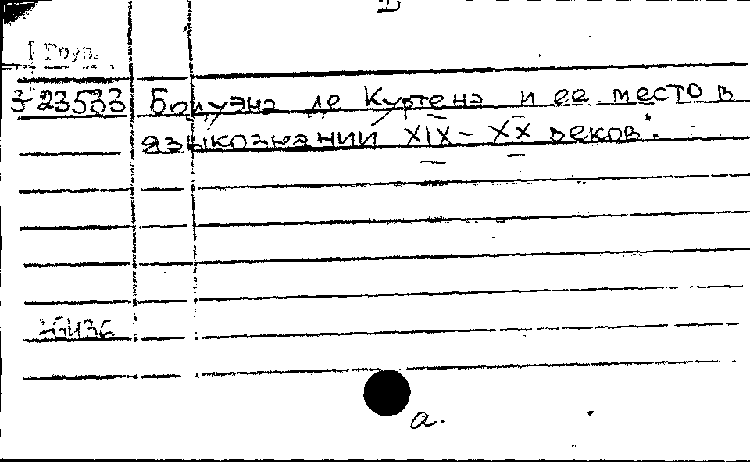 3-23533 Бодуэна де Куртенэ и ее место в
языкознании XIX - XX веков".
а.